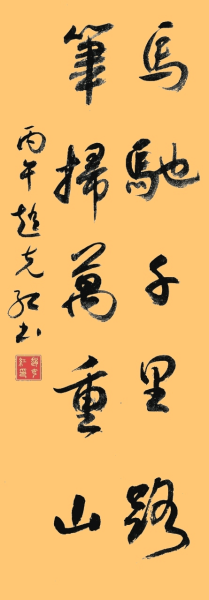 馬馳千里路
筆掃萬重山
丙午趙克紅书